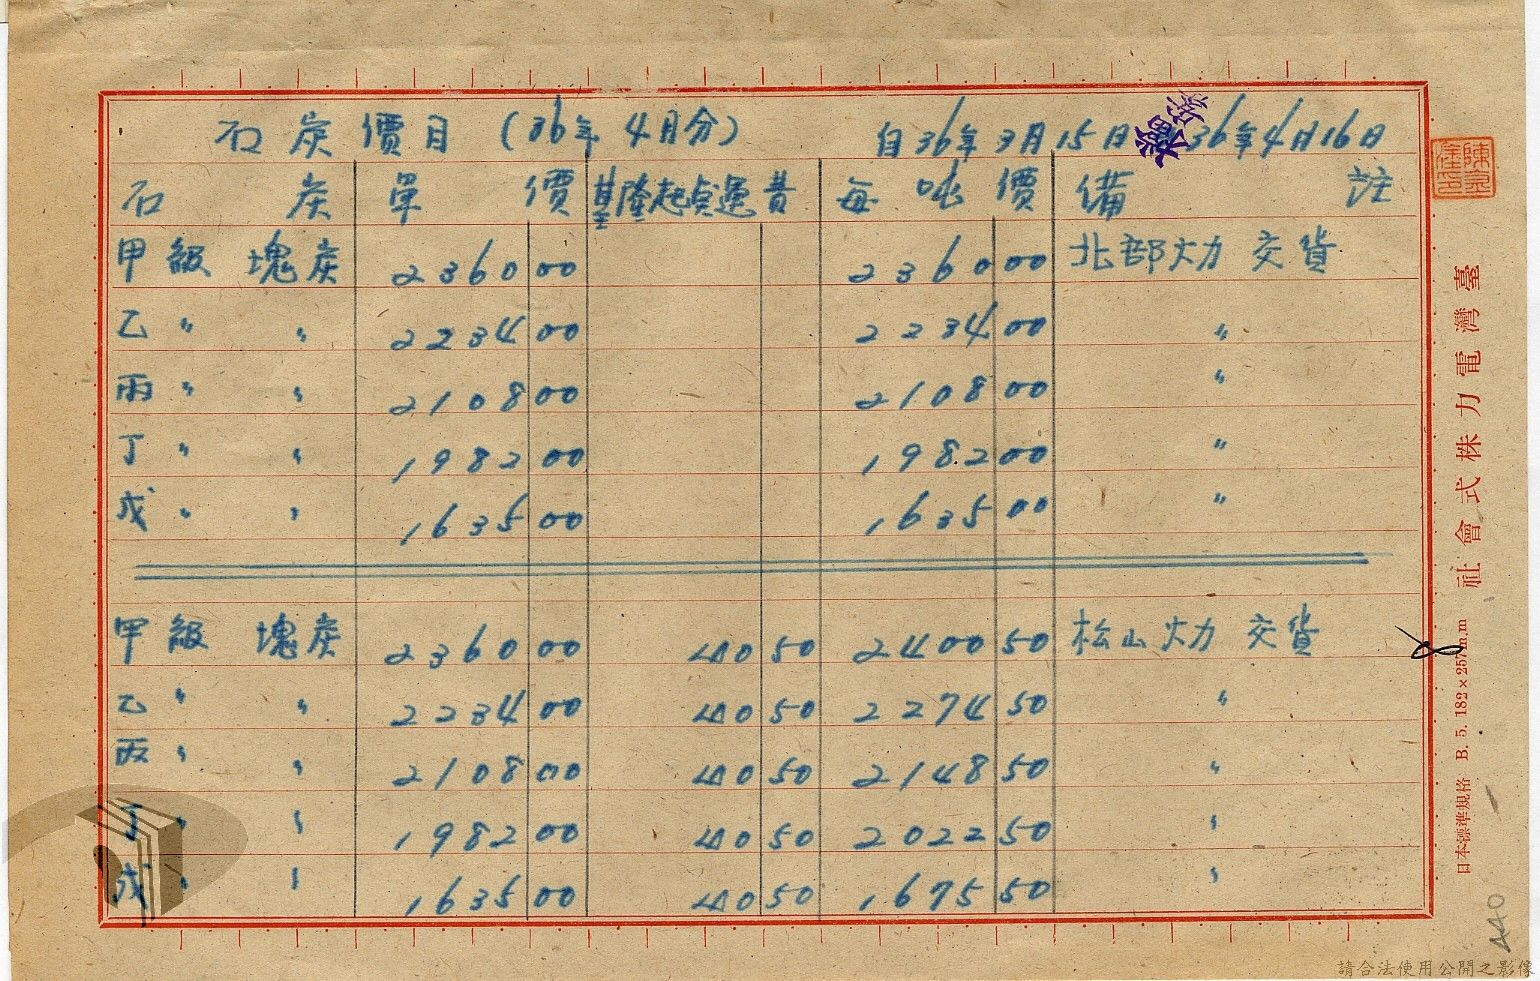 石炭價目 (36年4月分) 自36年3月15日 36年4月16日
石炭 單價 基隆起貨運費 每噸價 備註
甲級 塊炭 2360 00 2360 00 北部火力 交貨
乙〃 〃 2234 00 2234 00 〃
丙〃 〃 2108 00 2108 00 〃
丁〃 〃 1982 00 1982 00 〃
戊〃 〃 1635 00 1635 00 〃
甲級 塊炭 2360 00 40 50 2400 50 松山火力 交貨
乙〃 〃 2234 00 40 50 2274 50 〃
丙〃 〃 2108 00 40 50 2148 50 〃
丁〃 〃 1982 00 40 50 2022 50 〃
戊〃 〃 1635 00 40 50 1675 50 〃
臺灣電力株式會社
日本標準規格 B. 5. 182×257m.m
440
請合法使用公開之影像